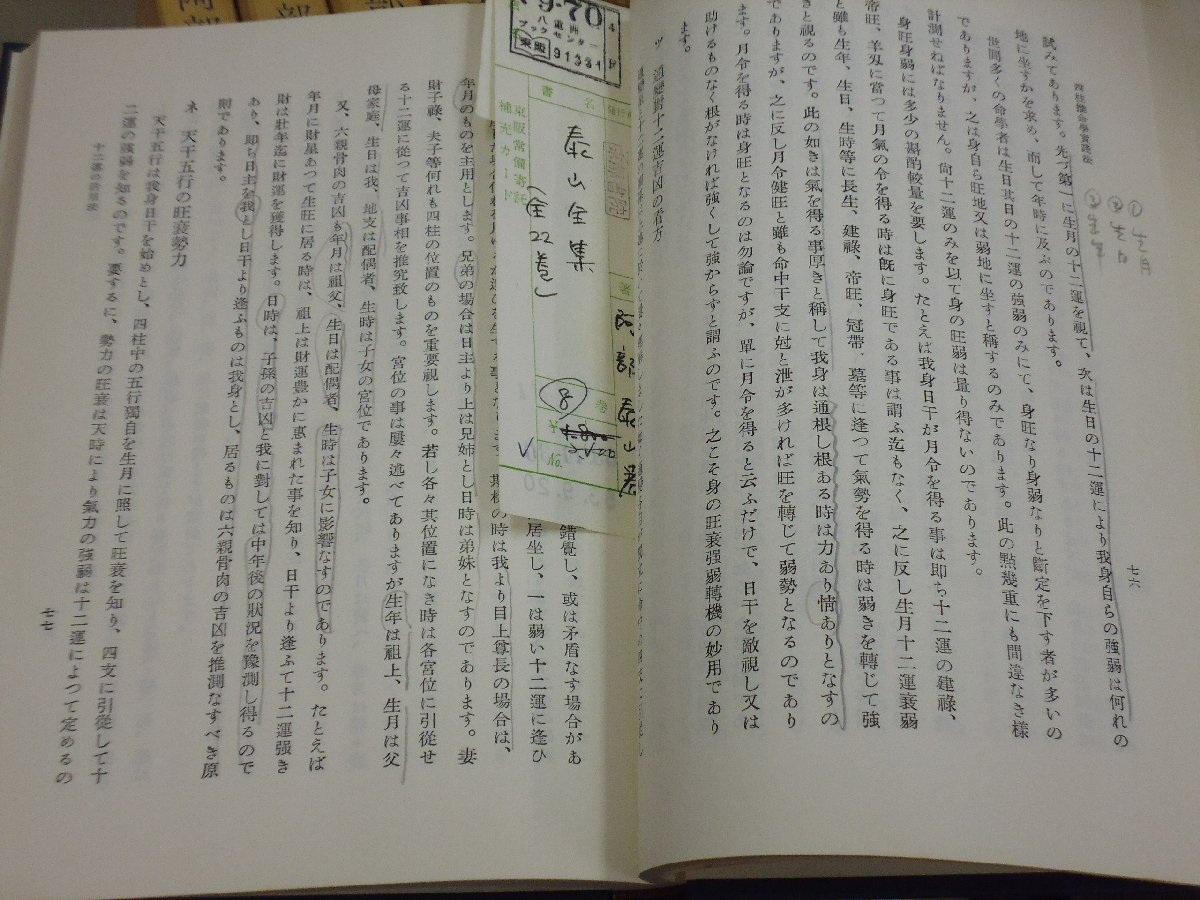 四柱推命學實踐法
七六
①生月
②生日
③生年
試みてあります。先づ第一に生月の十二運を視て、次は生日の十二運により我身自らの强弱は何れの
地に坐すかを求め、而して年時に及ぶのであります。
世間多くの命學者は生日其日の十二運の强弱のみにて、身旺なり身弱なりと斷定を下す者が多いの
でありますが、之は身自ら旺地又は弱地に坐すと稱するのみであります。此の點幾重にも間違なき樣
計測せねばなりません。尙十二運のみを以て身の旺弱は量り得ないのであります。
身旺身弱には多少の斟酌較量を要します。たとえば我身日干が月令を得る事は即ち十二運の建祿、
帝旺、羊刄に當つて月氣の令を得る時は旣に身旺である事は謂ふ迄もなく、之に反し生月十二運衰弱
と雖も生年、生日、生時等に長生、建祿、帝旺、冠帶、墓等に逢つて氣勢を得る時は弱きを轉じて强
きと視るのです。此の如きは氣を得る事厚きと稱して我身は通根し根ある時は力あり情ありとなすの
でありますが、之に反し月令建旺と雖も命中干支に尅と泄が多ければ旺を轉じて弱勢となるのであり
ます。月令を得る時は身旺となるのは勿論ですが、單に月令を得ると云ふだけで、日干を敵視し又は
助けるものなく根がなければ强くして强からずと謂ふのです。之こそ身の旺衰强弱轉機の妙用であり
ます。
ツ
八重洲
ブックセンター
東販
91331
書名
泰山全集
(全22巻)
著
阿部泰山著
巻
8
東販常備寄託
補充カード
錯覺し、或は矛盾なす場合があ
居坐し、一は弱い十二運に逢ひ
の時は我より目上尊長の場合は、
年月のものを主用とします。兄弟の場合は日主より上は兄姉とし日時は弟妹となすのであります。妻
財子祿、夫子等何れも四柱の位置のものを重要視します。若し各々其位置になき時は各宮位に引從せ
る十二運に從つて吉凶事相を推究致します。宮位の事は屢々逃べてありますが生年は祖上、生月は父
母家庭、生日は我、地支は配偶者、生時は子女の宮位であります。
又、六親骨肉の吉凶も年月は祖父、生日は配偶者、生時は子女に影響なすのであります。たとえば
年月に財星あつて生旺に居る時は、祖上は財運豊かに惠まれた事を知り、日干より逢ふて十二運强き
財は壯年迄に財運を獲得します。日時は、子孫の吉凶と我に對しては中年後の狀況を豫測し得るので
あり、即ち日主を我とし日干より逢ふものは我身とし、居るものは六親骨肉の吉凶を推測なすべき原
則であります。
ネ 天干五行の旺衰勢力
天干五行は我身日干を始めとし、四柱中の五行獨自を生月に照して旺衰を知り、四支に引從して十
二運の强弱を知るのです。要するに、勢力の旺衰は天時により氣力の强弱は十二運によつて定めるの
十二運の活用法
七七